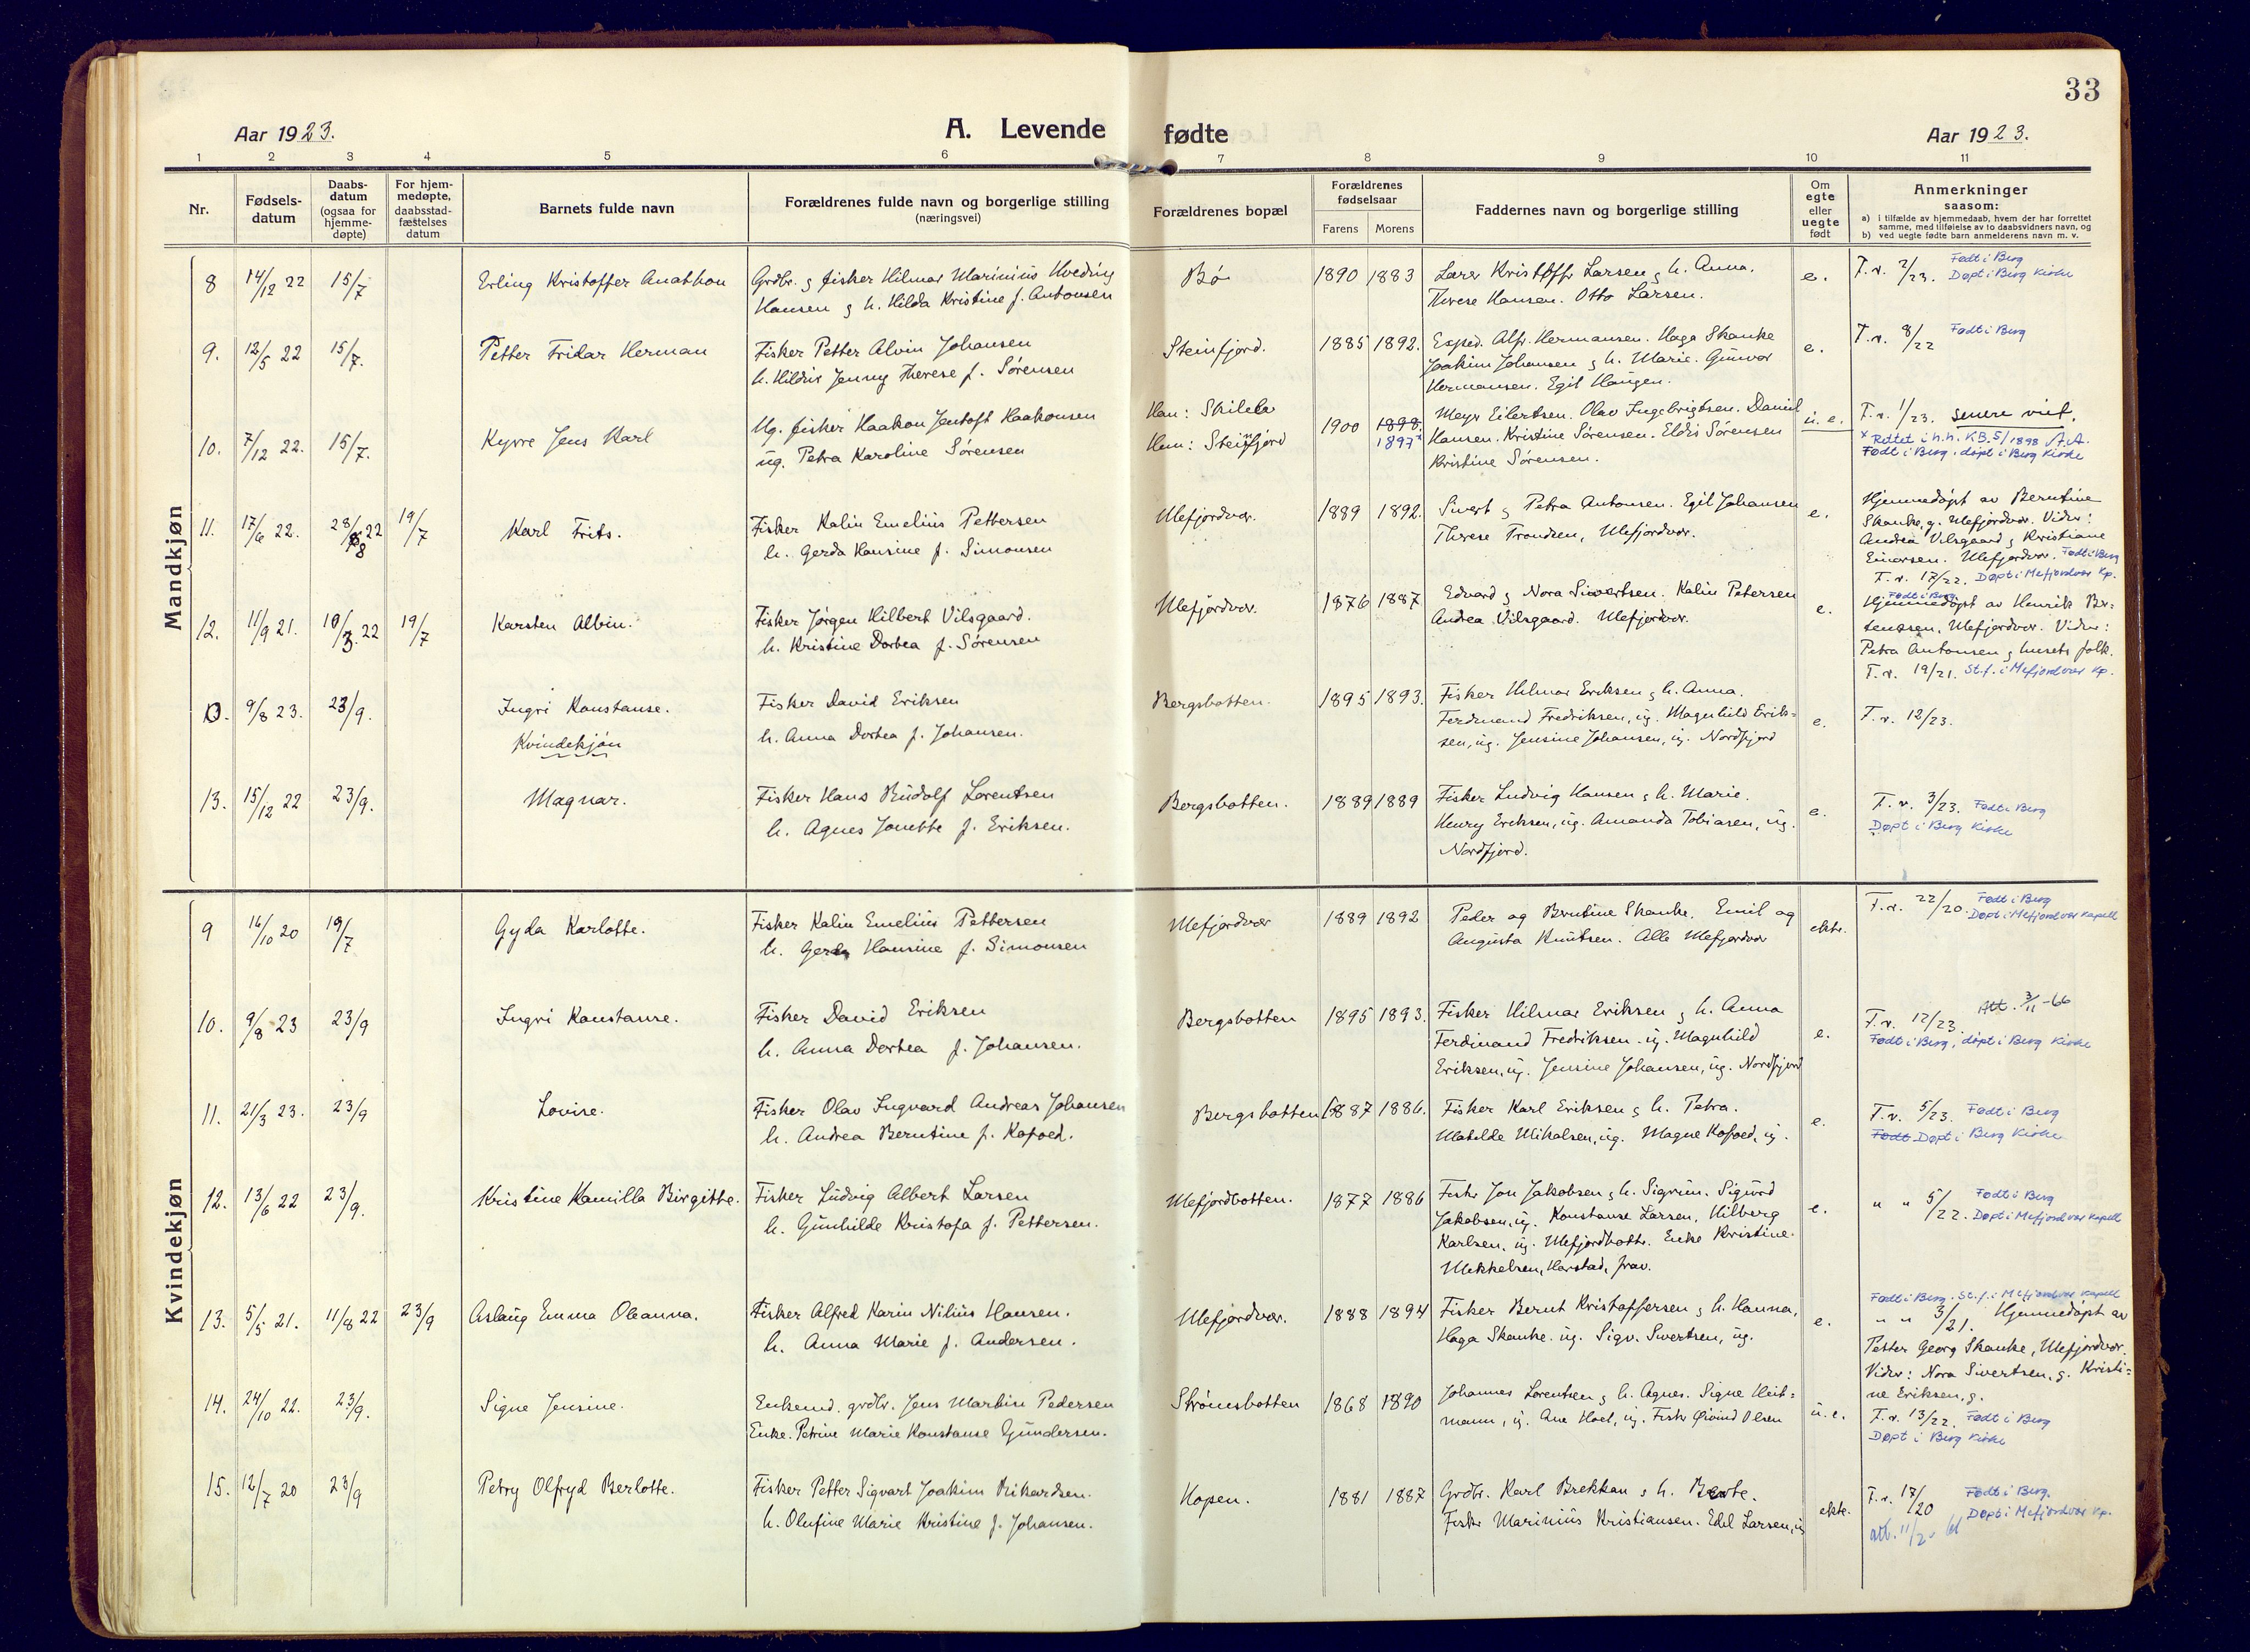 33
Aar 1923.
A. Levende fødte
Aar 1923.
1 2 3 4 5 6 7 8 9 10 11
Nr.
Fødsels-
datum
Daabs-
datum
(ogsaa for
hjemme-
døpte)
For hjem-
medøpte,
daabsstad-
fæstelses
datum
Barnets fulde navn
Forældrenes fulde navn og borgerlige stilling
(næringsvei)
Forældrenes bopæl
Forældrenes
fødselsaar
Farens Morens
Faddernes navn og borgerlige stilling
Om
egte
eller
uegte
født
Anmerkninger
saasom:
a) i tilfælde av hjemmedaab, hvem der har forrettet
samme, med tilføielse av to daabsvidners navn, og
b) ved uegte fødte barn anmelderens navn m. v.
Mandkjøn
8 14/12 22 15/7 Erling Kristoffer Anathon
Grdbr. & fisker Hilmar Marinius Hveding
Hansen & h. Hilda Kristine f. Antonsen
Bø 1890 1883
Lærer Kristoffer Larsen & h. Anna.
Therese Hansen. Otto Larsen.
e.
T.v. 2/23. Født i Berg
Døpt i Berg Kirke
9. 12/5 22 15/7. Petter Fridar Herman
Fisker Petter Alvin Johansen
h. Hildur Jenny Therese f. Sørensen
Steinfjord. 1885 1892.
Exped. Alfr. Hermansen. Haga Skanke
Joakim Johansen & h. Marie. Gunvor
Hermansen. Egil Haugen.
e.
T.v. 8/22 Født i Berg
10. 7/12 22. 15/7. Kyrre Jens Karl
Ug. fisker Haakon Jentoft Haakonsen
ug. Petra Karoline Sørensen
Han:
Hun: Steinfjord
1900 1898. 1897x
Meyer Eilertsen. Olav Ingebrigtsen. Daniel
Hansen. Kristine Sørensen. Eldis Sørensen
Kristine Sørensen.
u. e.
T.v. 1/23. senere viet.
x Rettet i h.h. KB. 5/1898 A.A.
Født i Berg, døpt i Berg Kirke
11. 17/6 22. 28/8 22 19/7 Karl Frits.
Fisker Kalin Emelius Pettersen
h. Gerda Hansine f. Simonsen
Mefjordvær. 1889 1892.
Sivert & Petra Antonsen. Egil Johansen
Therese Trondsen, Mefjordvær.
e.
Hjemmedøpt av Berntine
Skanke, g. Mefjordvær. Vidner:
Andrea Vilsgaard & Kristiane
Einarsen. Mefjordvær. Født i Berg
T.v. 17/22. Døpt i Mefjordvær Kp.
12. 11/9 21. 10/3. 22 19/7 Karsten Albin.
Fisker Jørgen Hilbert Vilsgaard.
h. Kristine Dortea f. Sørensen
Mefjordvær. 1876 1887
Edvard & Nora Sivertsen. Kalin Petersen
Andrea Vilsgaard. Mefjordvær.
e.
Født i Berg
Hjemmedøpt av Henrik Ber-
tensen, Mefjordvær. Vidner:
Petra Antonsen & husets folk.
T.v. 19/21. St.f. i Mefjordvær Kp.
9/8 23. 23/9. Ingri Konstanse.
Kvindekjøn
Fisker David Eriksen
h. Anna Dortea f. Johansen.
Bergsbotten. 1895 1893.
Fisker Hilmar Eriksen & h. Anna.
Ferdinand Fredriksen, ug. Magnhild Erik-
sen, ug. Jensine Johansen, ug. Nordfjord
e.
T.v. 12/23.
13. 15/12 22 23/9. Magnar.
Fisker Hans Rudolf Lorentsen
h. Agnes Jonette f. Eriksen.
Bergsbotten. 1889 1889
Fisker Ludvig Hansen & h. Marie.
Henry Eriksen, ug. Amanda Tobiasen, ug.
Nordfjord.
e.
T.v. 3/23. Født i Berg
Døpt i Berg Kirke
Kvindekjøn
9 16/10 20 19/7 Gyda Karlotte.
Fisker Kalin Emelius Pettersen
h. Gerda Hansine f. Simonsen
Mefjordvær 1889 1892
Peder og Berntine Skanke. Emil og
Augusta Knutsen. Alle Mefjordvær
ekte.
T.v. 22/20. Født i Berg
Døpt i Mefjordvær Kapell
10. 9/8 23 23/9 Ingri Konstanse.
Fisker David Eriksen
h. Anna Dortea f. Johansen.
Bergsbotten 1895 1893.
Fisker Hilmar Eriksen & h. Anna
Ferdinand Fredriksen. ug. Magnhild
Eriksen, ug. Jensine Johansen, ug. Nordfjord
e.
T.v. 12/23. Att. 3/11-66
Født i Berg, døpt i Berg Kirke
11. 21/3 23. 23/9 Lovise.
Fisker Olav Ingvard Andreas Johansen
h. Andrea Berntine f. Kofoed.
Bergsbotten 1887 1886.
Fisker Karl Eriksen & h. Petra.
Matilde Mikalsen, ug. Magne Kofoed, ug.
e.
T.v. 5/23. Født i Berg
Født Døpt i Berg Kirke
12. 13/6 22 23/9. Kristine Kamilla Birgitte.
Fisker Ludvig Albert Larsen
h. Gunhilde Kristofa f. Pettersen.
Mefjordbotten. 1877 1886
Fisker Jon Jakobsen & h. Sigrun. Sigurd
Jakobsen, ug. Konstanse Larsen, Hilberg
Karlsen, ug. Mefjordbotten. Enke Kristine
Mikkelsen, Harstad, frav.
e.
" " 5/22. Født i Berg
Døpt i Mefjordvær Kapell
13. 5/5 21. 11/8 22 23/9 Aslaug Emma Oleanna.
Fisker Alfred Karin Nilius Hansen.
h. Anna Marie f. Andersen.
Mefjordvær. 1888 1894
Fisker Bernt Kristoffersen & h. Hanna,
Haga Skanke. ug. Sigv. Sivertsen, ug.
e.
Født i Berg. St.f. i Mefjordvær Kapell
" " 3/21. Hjemmedøpt av
Petter Georg Skanke, Mefjordvær.
Vidner: Nora Sivertsen, g. Kristi-
ne Eriksen, g.
14. 24/10 22. 23/9. Signe Jensine.
Enkemd. grdbr. Jens Martin Pedersen
Enke. Petrine Marie Konstanse Gundersen.
Strømsbotten 1868 1890
Johannes Lorentsen & h. Agnes. Signe Heit-
mann, ug. Ane Hoel, ug. Fisker Øivind Olsen
u. e.
T.v. 13/22. Født i Berg
Døpt i Berg Kirke
15. 12/7 20 23/9 Petry Olfryd Berlotte.
Fisker Petter Sigvart Joakim Rikardsen.
h. Olufine Marie Kristine f. Johansen.
Hopen. 1881 1887
Grdbr. Karl Brekkan & h. Berte.
Fisker Marinius Kristiansen. Edel Larsen, ug
ekte.
T.v. 17/20 Født i Berg.
Døpt i Mefjordvær Kp.